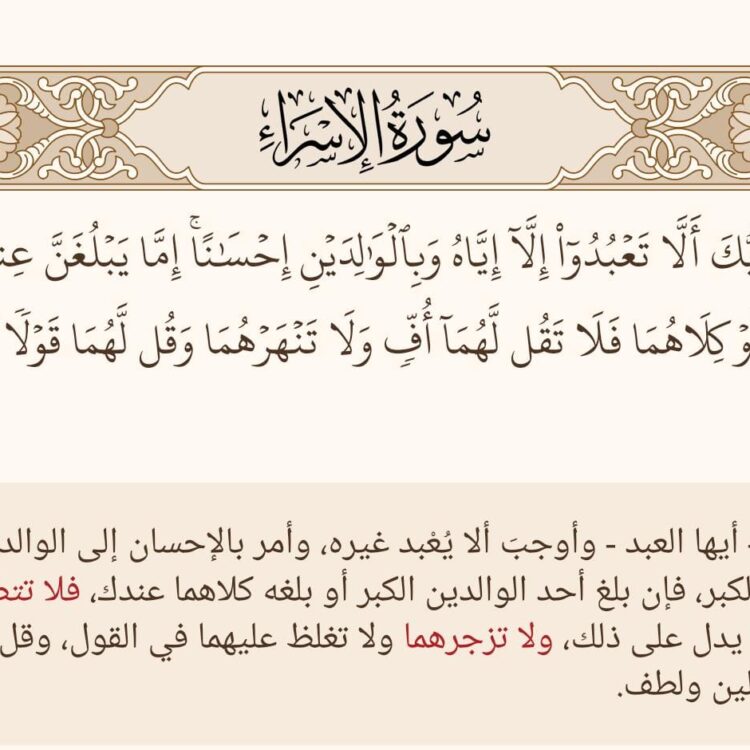 سُورَةُ الإِسْرَاءِ
أَلَّا تَعْبُدُوٓا۟ إِلَّآ إِيَّاهُ وَبِٱلْوَٰلِدَيْنِ إِحْسَـٰنًا ۚ إِمَّا يَبْلُغَنَّ
كِلَاهُمَا فَلَا تَقُل لَّهُمَآ أُفٍّ وَلَا تَنْهَرْهُمَا وَقُل لَّهُمَا قَوْلًا
أيها العبد - وأوجبَ ألا يُعْبد غيره، وأمر بالإحسان إلى
فإن بلغ أحد الوالدين الكبر أو بلغه كلاهما عندك، فلا
يدل على ذلك، ولا تزجرهما ولا تغلظ عليهما في القول، وقل
ولطف.